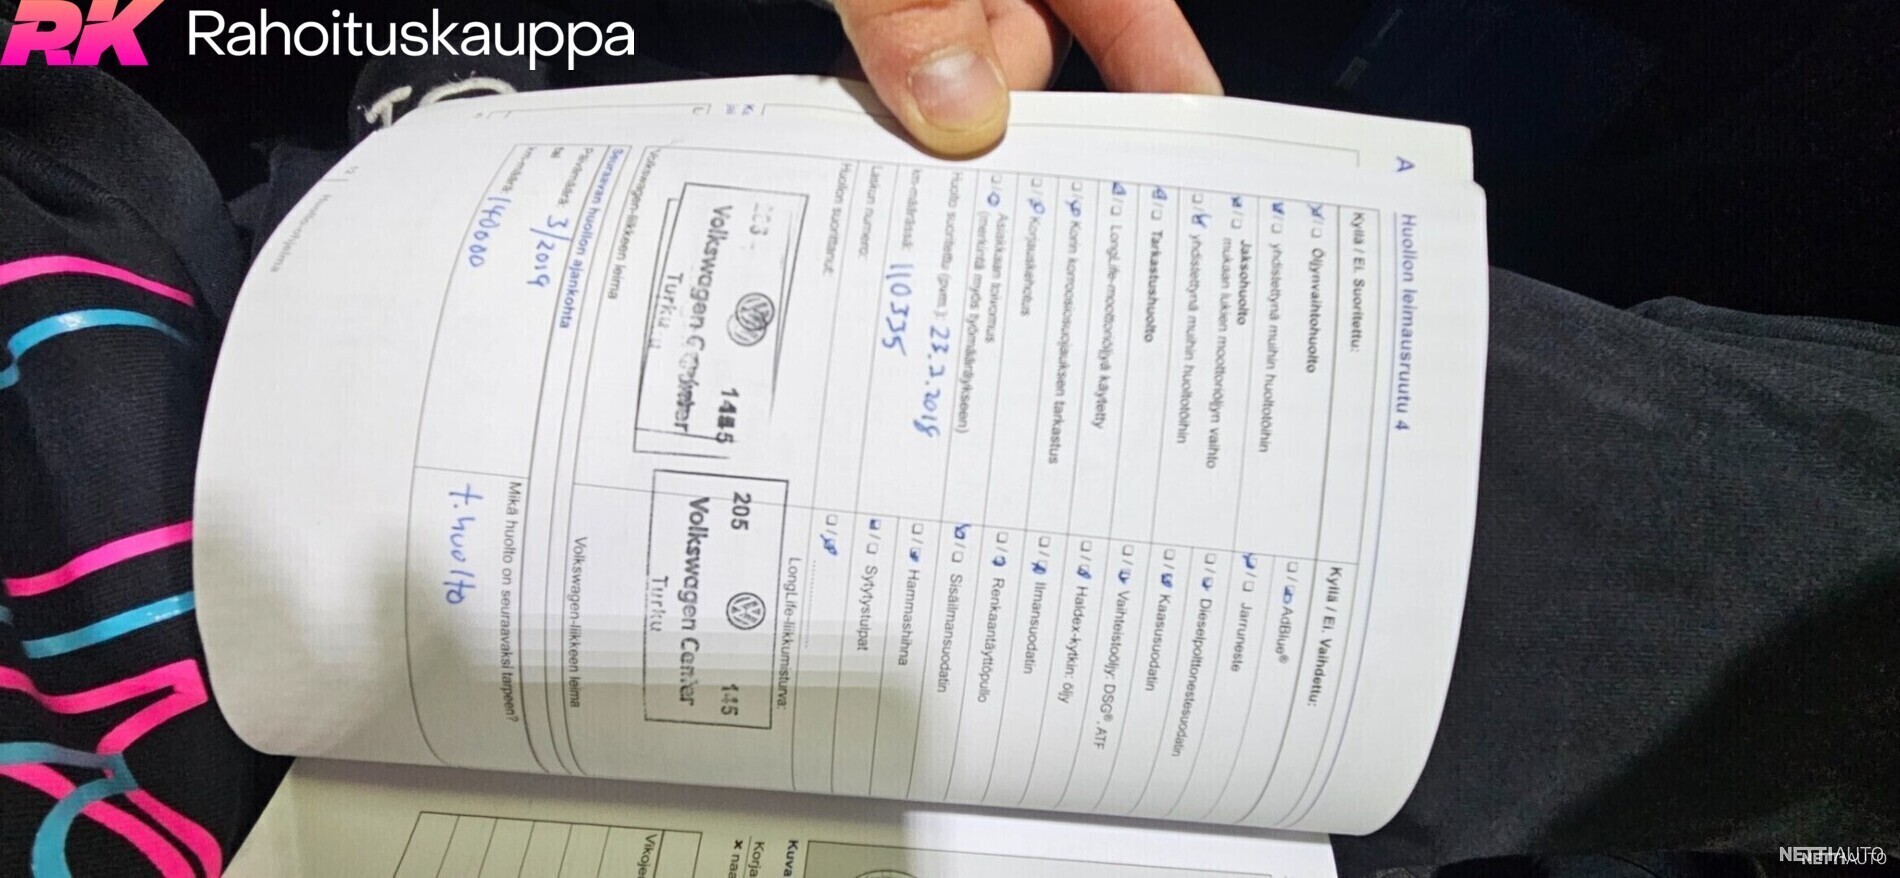 RK Rahoituskauppa
A Huollon leimausruutu 4
Kyllä / Ei. Suoritettu:
Öljynvaihtohuolto
yhdistettynä muihin huoltotöihin
Jaksohuolto
mukaan lukien moottoriöljyn vaihto
yhdistettynä muihin huoltotöihin
Tarkastushuolto
LongLife-moottoriöljyä käytetty
Korin korroosiosuojauksen tarkastus
Korjauskehotus
Asiakkaan toivomus
(merkintä myös työmääräykseen)
Huolto suoritettu (pvm.): 23.2.2018
km-määrässä: 110335
Laskun numero:
Huollon suorittanut:
Volkswagen Center
Turku
Volkswagen-liikkeen leima
Seuraavan huollon ajankohta
Päivämäärä: 3/2019
tai
km-määrä: 140000
Kyllä / Ei. Vaihdettu:
AdBlue®
Jarruneste
Dieselpolttonestesuodatin
Kaasusuodatin
Vaihteistoöljy: DSG®, ATF
Haldex-kytkin: öljy
Ilmansuodatin
Renkaantäyttöpullo
Sisäilmansuodatin
Hammashihna
Sytytystulpat
LongLife-liikkumisturva:
205 145
Volkswagen Center
Turku
Volkswagen-liikkeen leima
Mikä huolto on seuraavaksi tarpeen?
t.huolto
Kuva
Korja
x naa
Vikojen
NETTIAUTO
NETTIAUTO